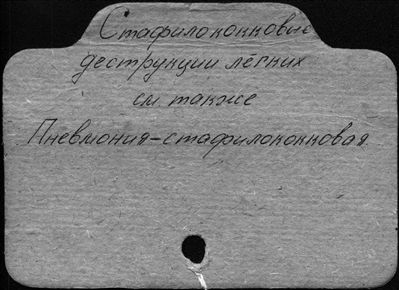 Стафилококковые
деструкции лёгких
см. также
Пневмония-стафилококковая.